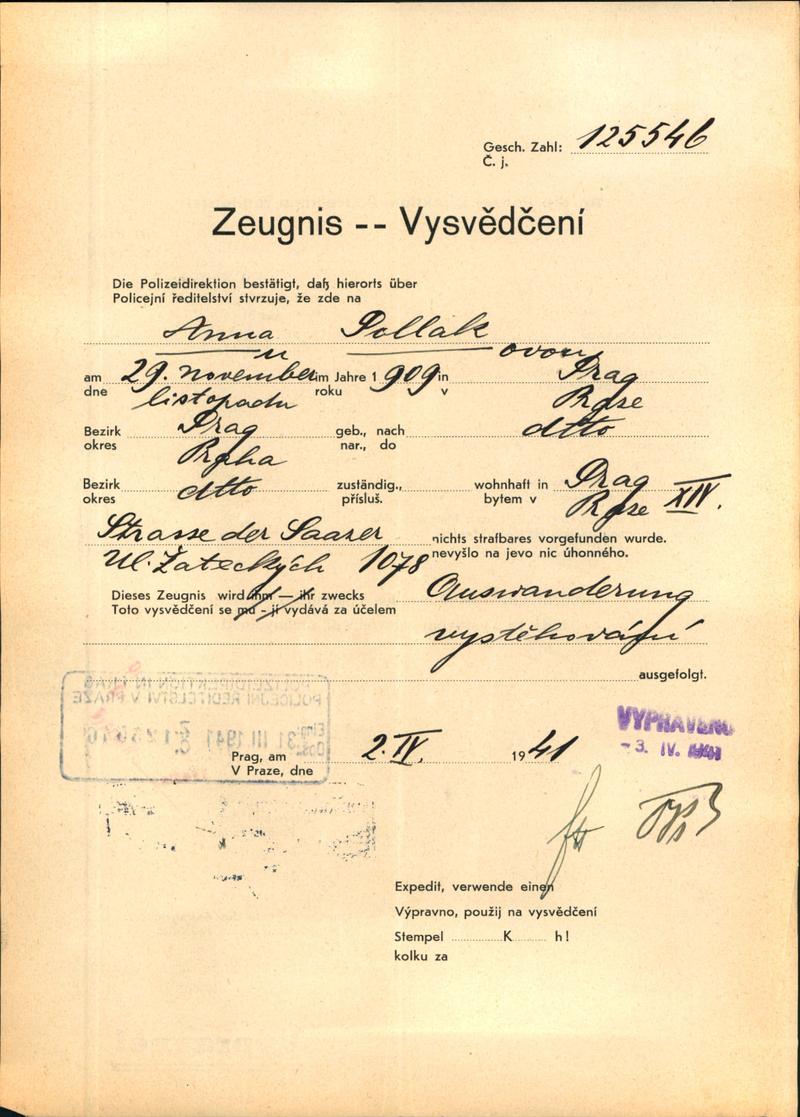 Gesch. Zahl: 125546
Č. j.
Zeugnis -- Vysvědčení
Die Polizeidirektion bestätigt, daß hierorts über
Policejní ředitelství stvrzuje, že zde na
Anna Pollak
u ovou
am 29. november im Jahre 1 909 in Prag
dne listopadu roku v Praze
Bezirk Prag geb., nach dtto
okres Praha nar., do
Bezirk dtto zuständig., wohnhaft in Prag
okres přísluš. bytem v Praze XIV.
Strasse der Saazer nichts strafbares vorgefunden wurde.
Ul. Žateckých 1078 nevyšlo na jevo nic úhonného.
Dieses Zeugnis wird ihm — ihr zwecks Auswanderung
Toto vysvědčení se mu - jí vydává za účelem
vystěhování
ausgefolgt.
POLIZEIDIREKTION IN PRAG
POLICEJNÍ ŘEDITELSTVÍ V PRAZE
31 III 1941
125546
VYPRAVENO
- 3. IV. 1941
Prag, am 2. IV. 19 41
V Praze, dne
Expedit, verwende einen
Výpravno, použij na vysvědčení
Stempel K h!
kolku za